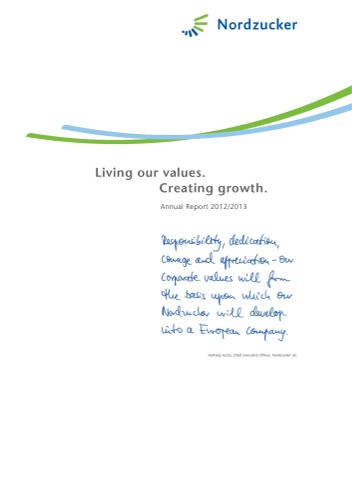 Nordzucker
Living our values.
Creating growth.
Annual Report 2012/2013
Responsibility, dedication,
courage and appreciation – our
corporate values will form
the basis upon which our
Nordzucker will develop
into a European company.
Hartwig Fuchs, Chief Executive Officer, Nordzucker AG